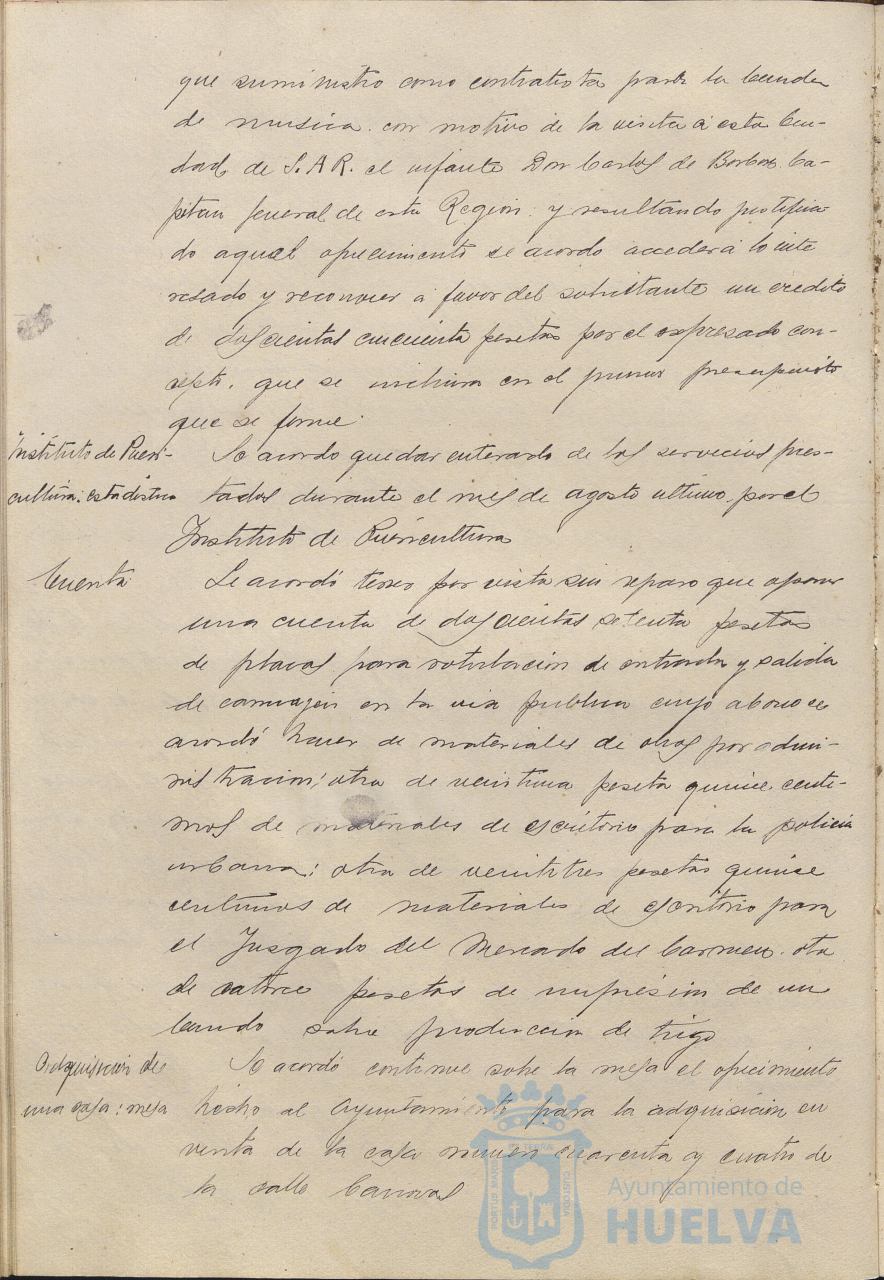 que suministro como contratista para la banda
de musica con motivo de la visita á esta Ciu-
dad de S.A.R. el infante Don Carlos de Borbon Ca-
pitan general de esta Region y resultando justifica-
do aquel ofrecimiento se acordo acceder á lo inte
resado y reconocer á favor del solicitante un credito
de doscientas cincuenta pesetas por el expresado con-
cepto, que se incluira en el primer presupuesto
que se forme.
Instituto de Pueri-
cultura: estadistica
Se acordo quedar enterado de los servicios pres-
tados durante el mes de agosto ultimo por el
Instituto de Puericultura
Cuenta
Se acordó tener por vista sin reparo que oponer
una cuenta de doscientas setenta pesetas
de placas para rotulación de entrada y salida
de carruajes en la via publica cuyo abono se
acordó hacer de materiales de obras por admi-
nistracion; otra de veintiuna peseta quince centi-
mos de materiales de escritorio para la policia
urbana; otra de veintitres pesetas quince
centimos de materiales de escritorio para
el Juzgado del Mercado del Carmen. otra
de catorce pesetas de impresion de un
bando sobre produccion de trigo
Adquisicion de
una casa: mesa
Se acordó continue sobre la mesa el ofrecimiento
hecho al Ayuntamiento para la adquisicion en
venta de la casa numero cuarenta y cuatro de
la calle Canovas
PORTUS MARIS
ET TERRÆ
CUSTODIA
Ayuntamiento de
HUELVA